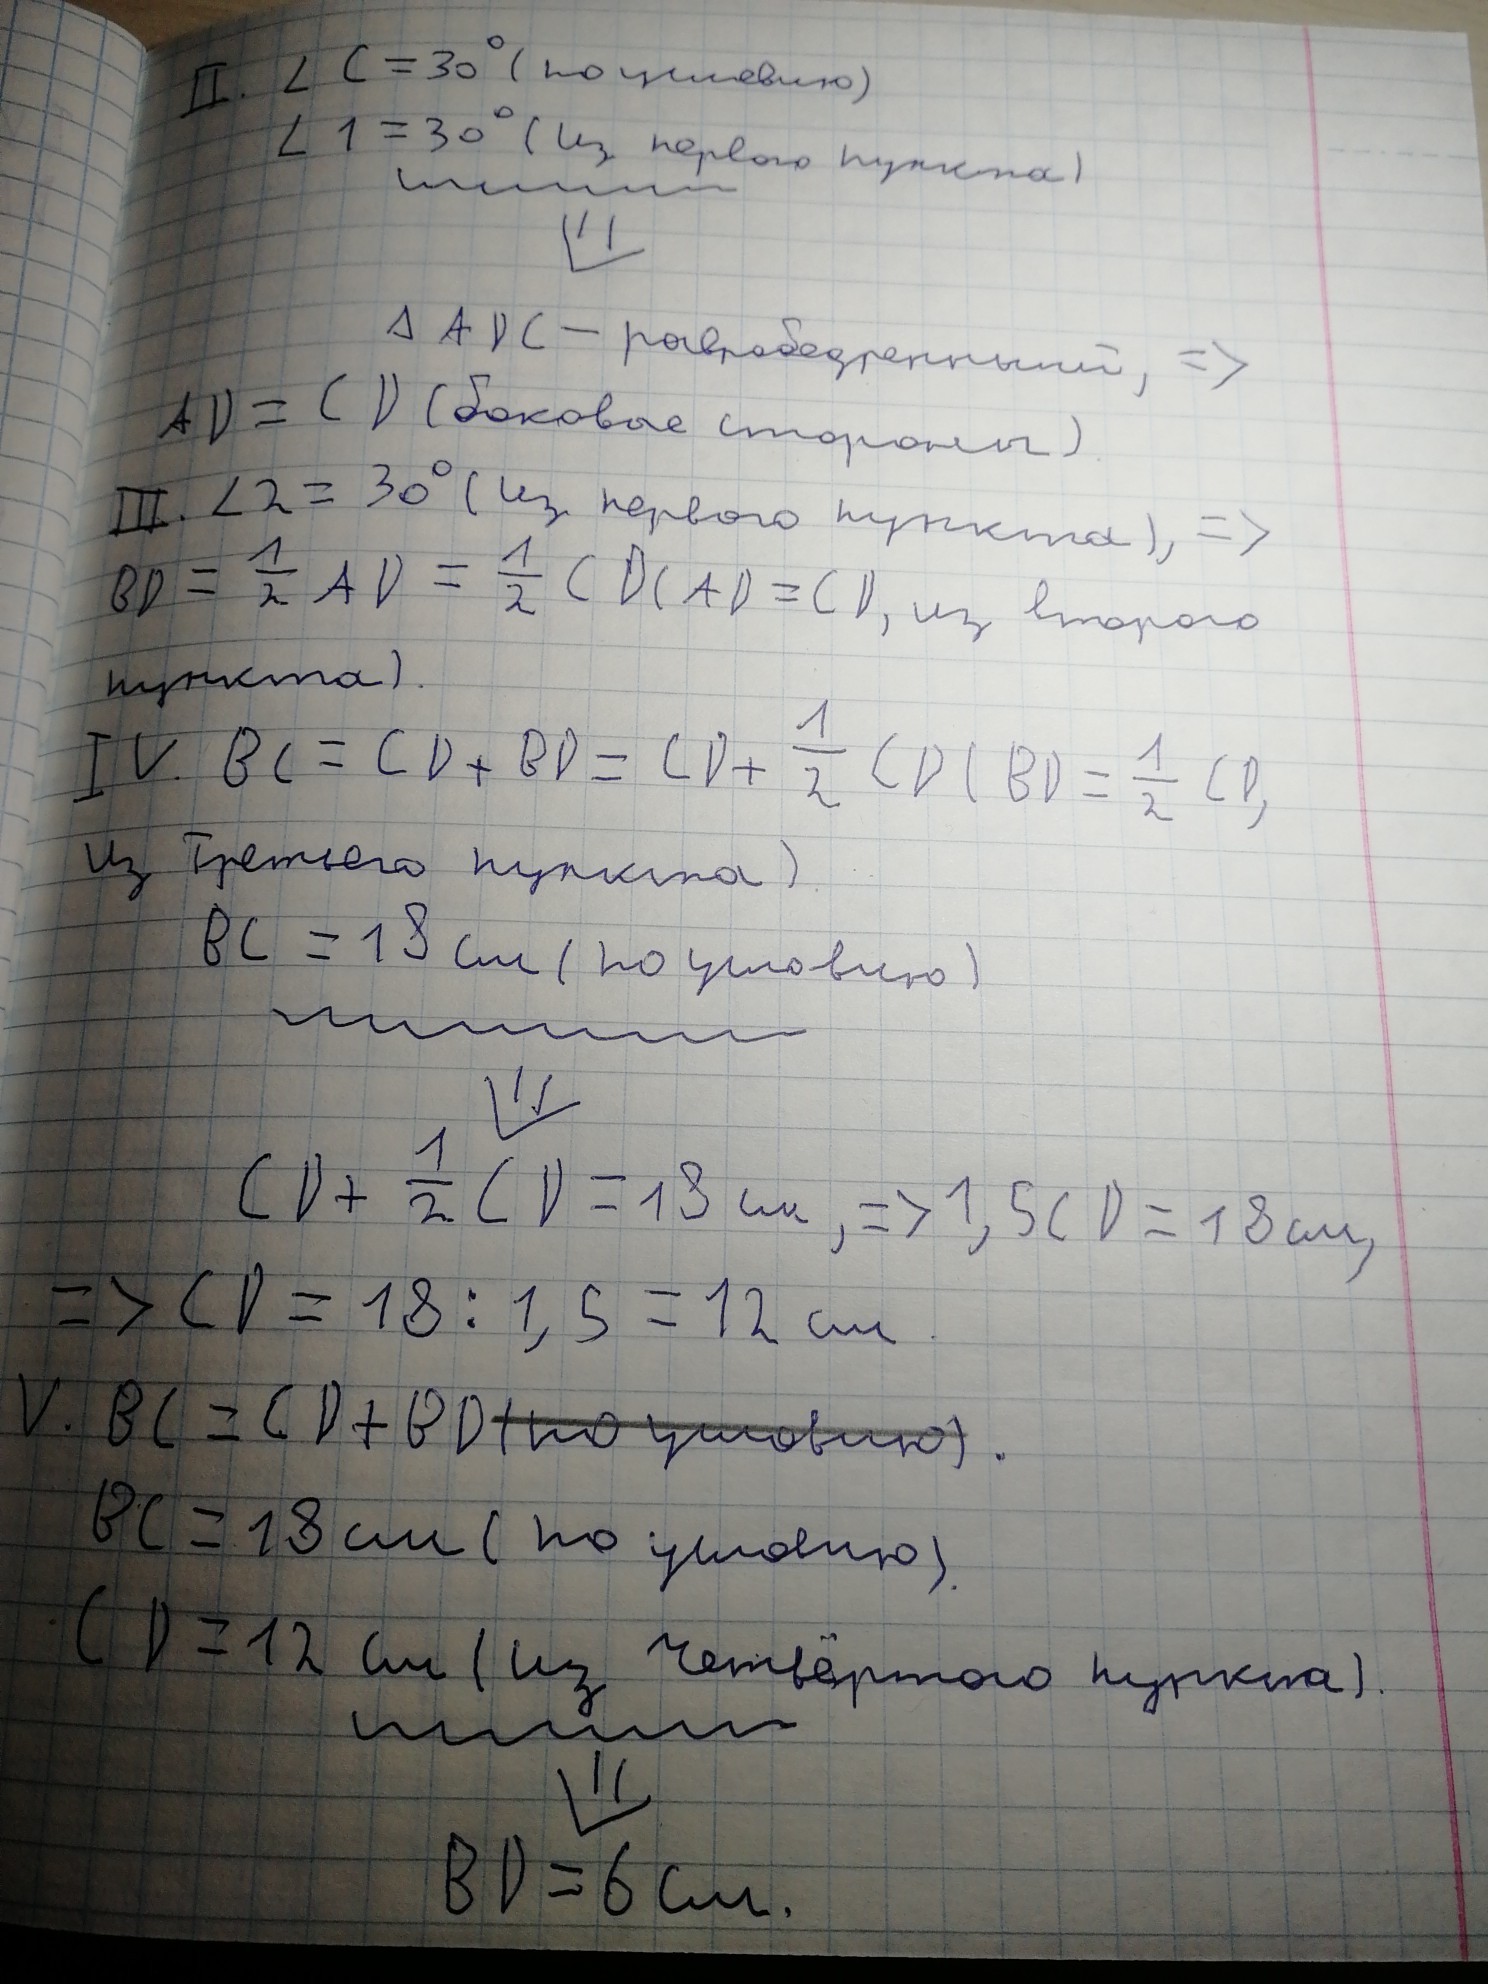 II. ∠C=30°(по условию)
∠1=30°(из первого пункта)
⇓
ΔADC – равнобедренный, =>
AD=CD(боковые стороны)
III. ∠2=30°(из первого пункта), =>
BD=1/2AD=1/2CD(AD=CD, из второго
пункта).
IV. BC=CD+BD=CD+1/2CD(BD=1/2CD,
из третьего пункта).
BC=18см(по условию)
⇓
CD+1/2CD=18см, =>1,5CD=18см,
=>CD=18:1,5=12см.
V. BC=CD+BD(по условию).
BC=18см(по условию).
CD=12 см(из четвёртого пункта).
⇓
BD=6см.